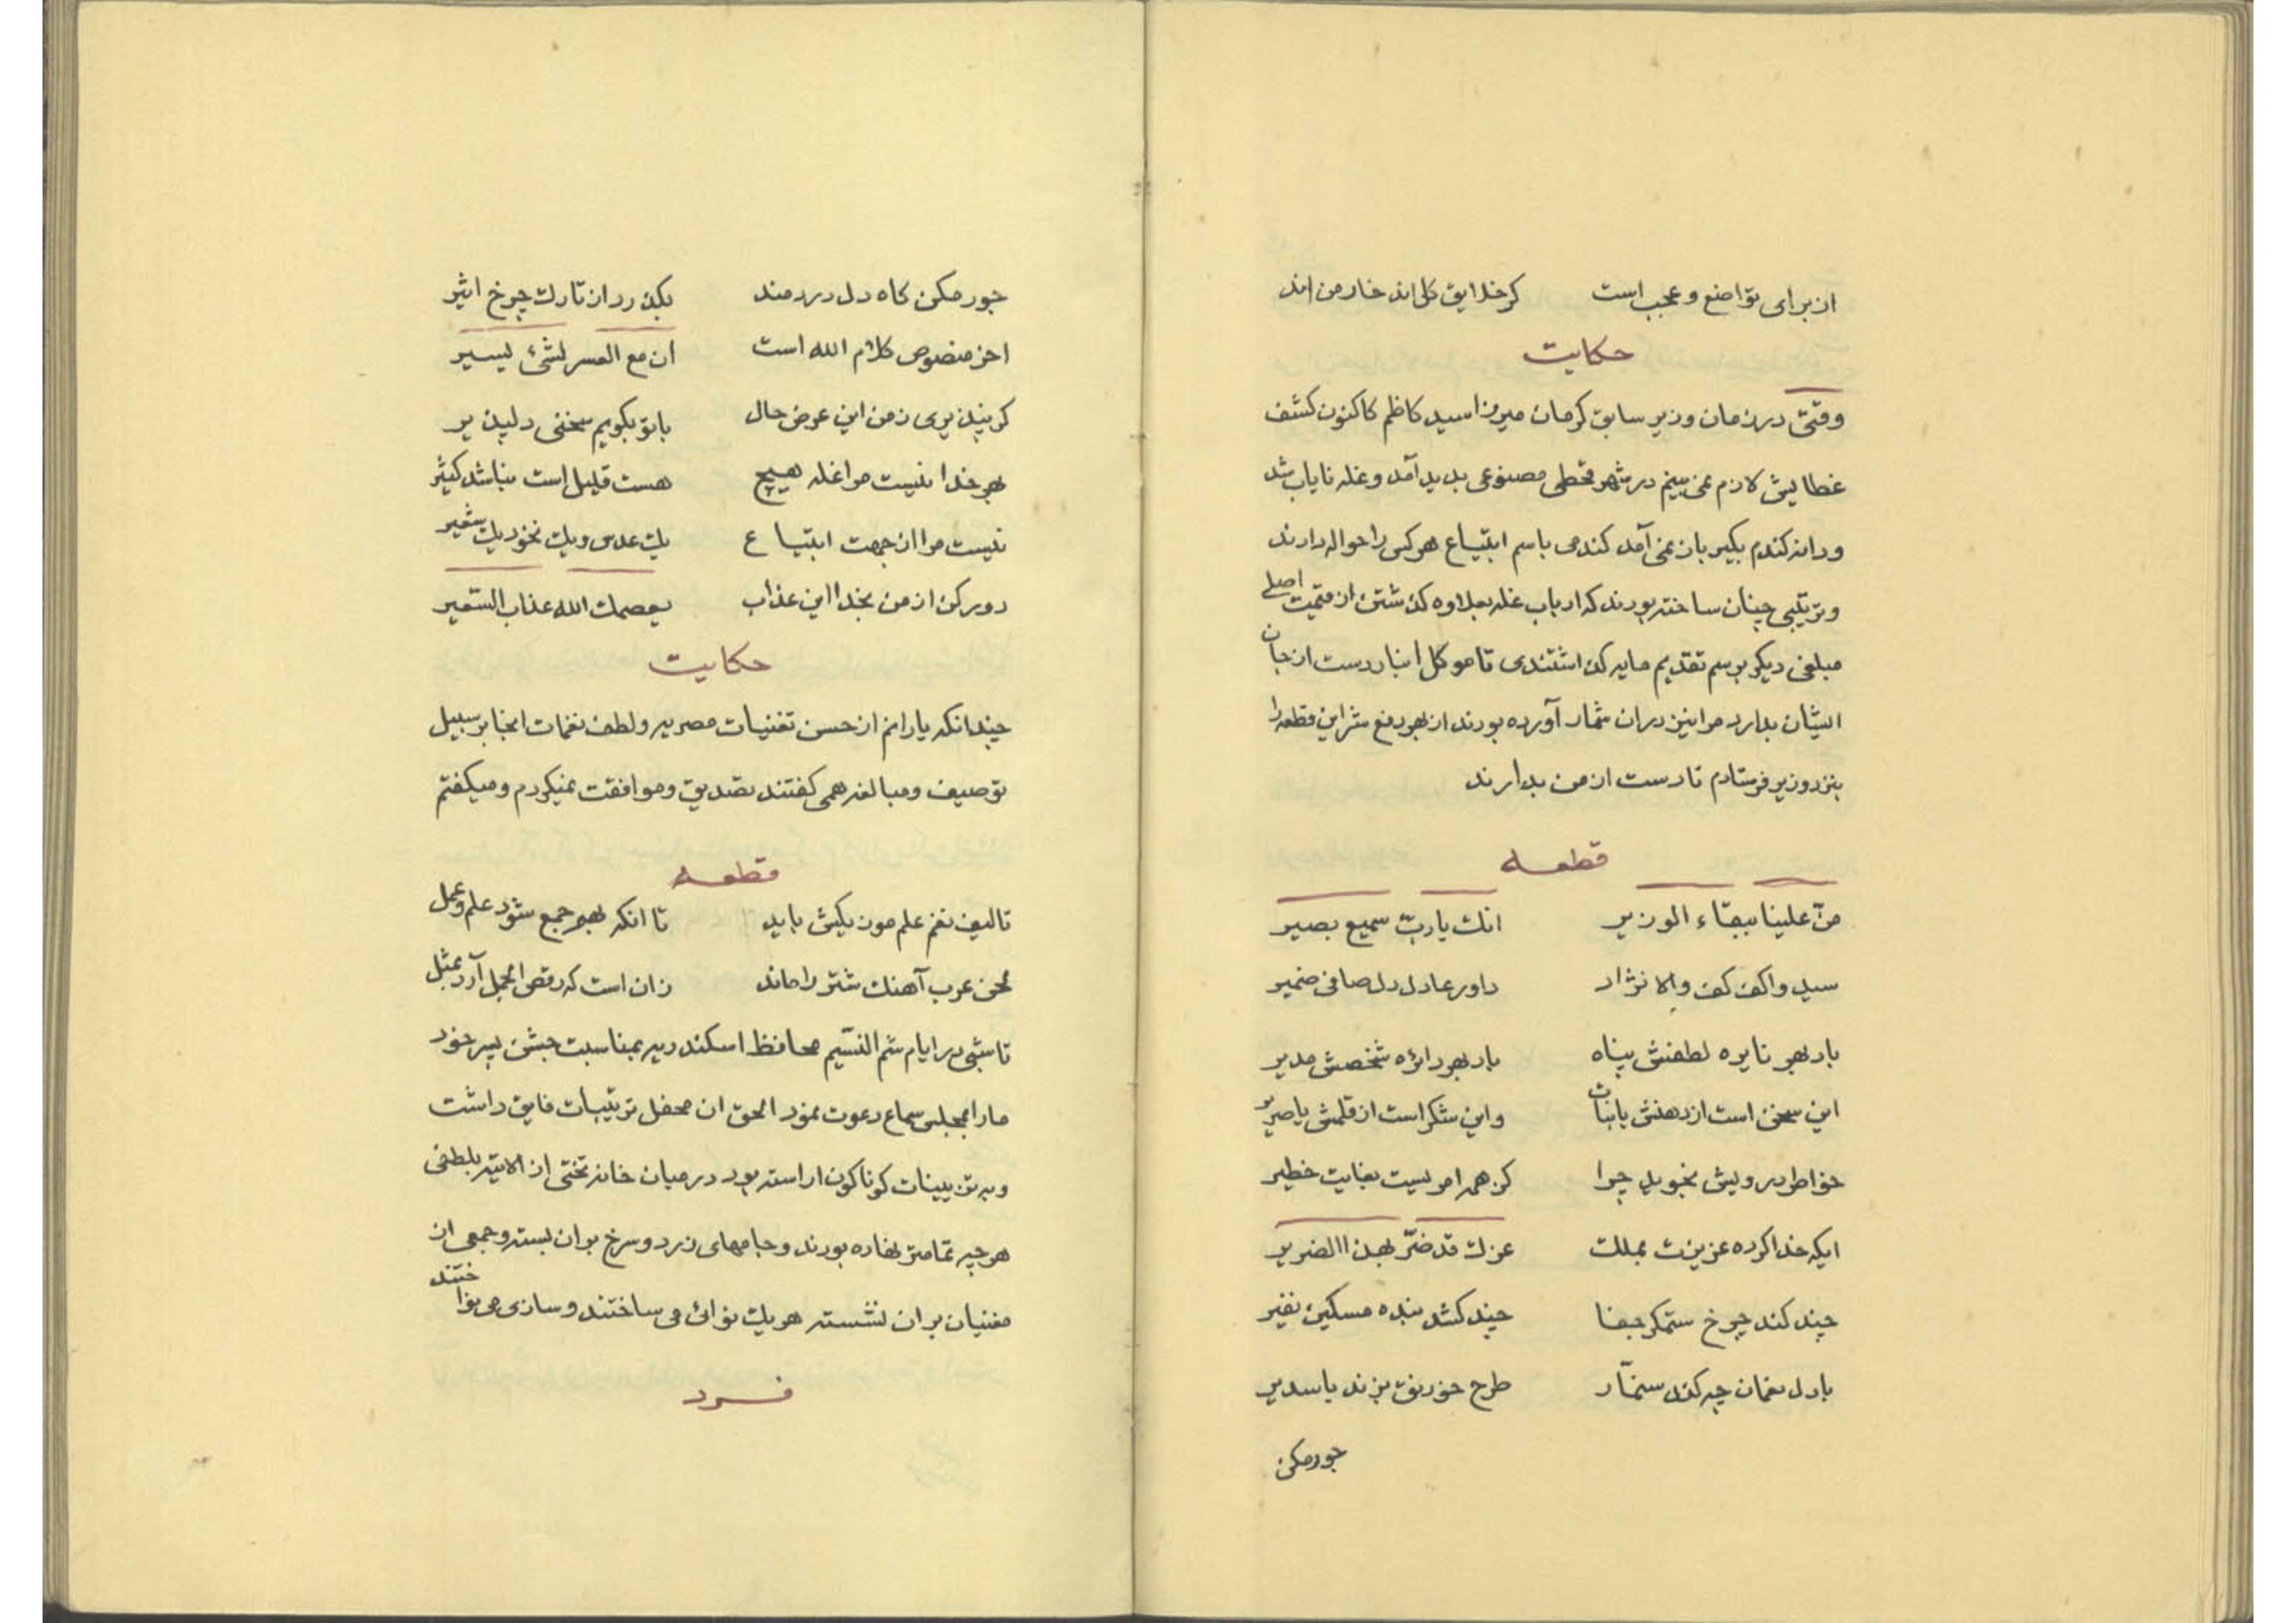 از برای تواضع و عجب است کز خدایق کل اند خار من اند
حکایت
وقتی در زمان وزیر سابق کرمان میرزا سید کاظم کاکنون کشف
غطایش لازم نمی بینم در شهر قحطی مصنوعی بدید آمد و غله نایاب شد
و دانه کندم بکیر باز نمی آمد کندمی باسم ابتیاع هر کس را حواله دادند
و ترتیبی چنان ساخته بودند که ارباب غله بعلاوه کذشتن از قیمت اصلی
مبلغی دیکر برسم تقدیم مایه کذاشتندی تا موکل انبار دست از جان
ایشان بدارد مرا نیز دران شمار آورده بودند از بهر دفع شر این قطعه را
بنزد وزیر فرستادم تا دست از من بدارند
قطعه
منّ علینا ببقاء الوزیر انك یا ربّ سمیع بصیر
سید واکف کف والا نژاد داور عادل دل صافی ضمیر
باد بهر نایره لطفش پناه باد بهر دائره شخصش مدیر
این سخن است از دهنش یا نبات واین شکر است از قلمش یا صریر
خواطر درویش نجوید چرا کز همه امریست بغایت خطیر
ایکه خدا کرده عزیزت بملك عزك قد ضرّ بهذا الضریر
چند کند چرخ ستمکر جفا چند کشد بنده مسکین نفیر
با دل نعمان چه کند سنمّار طرح خورنق بزند یا سدیر
جور مکن
جور مکن کاه دل دردمند بکذرد از تارك چرخ اثیر
اخر منصوص کلام الله است ان مع العسر لشئ یسیر
کر بپذیری ز من این عرض حال باتو بکویم سخنی دلپذیر
بهر خدا نیست مرا غله هیچ هست قلیل است نباشد کثیر
نیست مرا از جهت ابتیاع یك عدس ویك نخود یك شعیر
دور کن از من بخدا این عذاب یعصمك الله عذاب السّعیر
حکایت
چندانکه یارانم از حسن تغنیات مصریه و لطف نغمات انجا بر سبیل
توصیف ومبالغه همی کفتند تصدیق وموافقت نمیکردم ومیکفتم
قطعه
تالیف نغم علم موزیکیش باید تا انکه بهم جمع شود علم وعمل
لحن عرب آهنك شتر را ماند زان است که رقص الجمل آرد بمثل
تا شبی در ایام شم النّسیم محافظ اسکندریه بمناسبت جشن پسر خود
مارا بمجلس سماع دعوت نمود الحق ان محفل ترتیبات فایق داشت
وبه تزیینات کوناکون اراسته بود در میان خانه تختی از الایته بلطفی
هرچه تمامتر نهاده بودند وجامهای زرد وسرخ بران بسته وجمعی از
مغنیان بران نشسته هریك نوائی می ساختند وسازی می نواختند
فرد